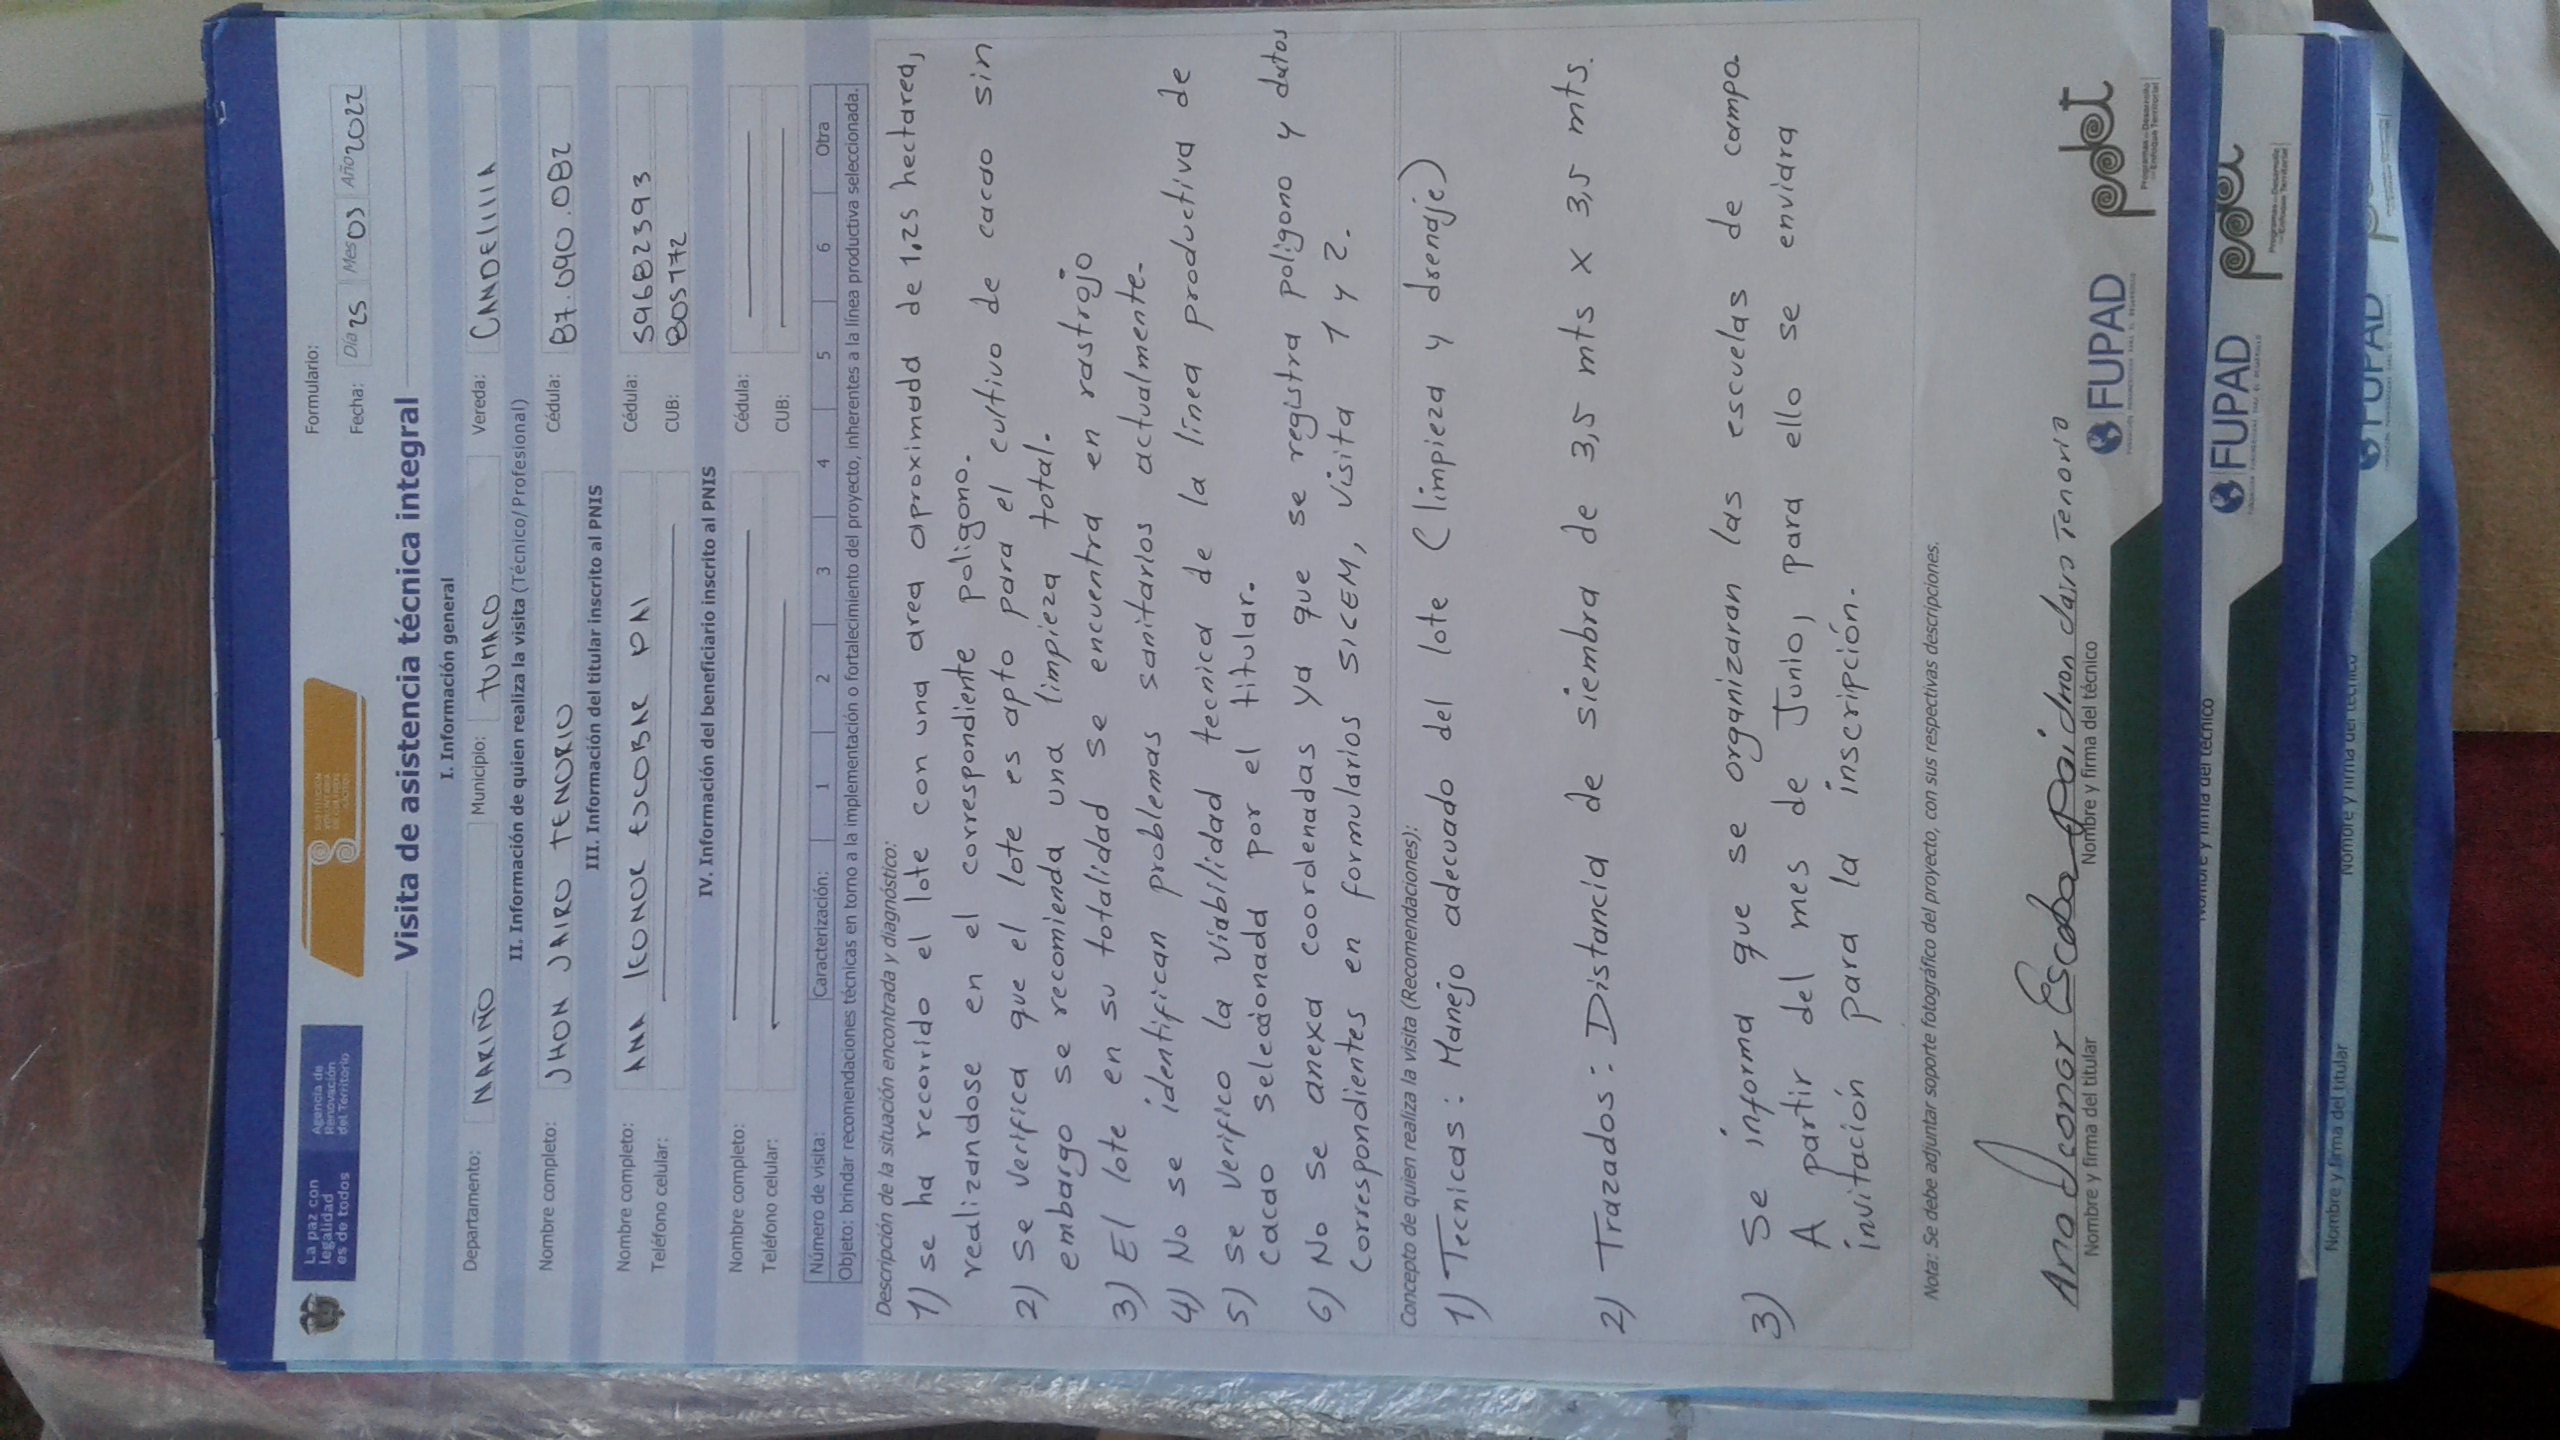 La paz con
legalidad
es de todos
Agencia de
Renovación
del Territorio
SUSTITUCIÓN
VOLUNTARIA
DE CULTIVOS
ILÍCITOS
Formulario:
Fecha: Día 25 Mes 03 Año 2022
Visita de asistencia técnica integral
I. Información general
Departamento: NARIÑO Municipio: TUMACO Vereda: CANDElIllA
II. Información de quien realiza la visita (Técnico/ Profesional)
Nombre completo: JHON JAIRO TENORIO Cédula: 87.090.082
III. Información del titular inscrito al PNIS
Nombre completo: ANA lEONOR ESCOBAR PAI Cédula: 59682393
Teléfono celular: CUB: 805172
IV. Información del beneficiario inscrito al PNIS
Nombre completo: Cédula:
Teléfono celular: CUB:
Número de visita: Caracterización: 1 2 3 4 5 6 Otra
Objeto: brindar recomendaciones técnicas en torno a la implementación o fortalecimiento del proyecto, inherentes a la línea productiva seleccionada.
Descripción de la situación encontrada y diagnóstico:
1) se ha recorrido el lote con una area aproximada de 1,25 hectarea,
realizandose en el correspondiente poligono.
2) Se verifica que el lote es apto para el cultivo de cacao sin
embargo se recomienda una limpieza total.
3) El lote en su totalidad se encuentra en rastrojo
4) No se identifican problemas sanitarios actualmente.
5) se verifico la viabilidad tecnica de la linea productiva de
cacao seleccionada por el titular.
6) No se anexa coordenadas ya que se registra poligono y datos
correspondientes en formularios SICEM, visita 1 y 2.
Concepto de quien realiza la visita (Recomendaciones):
1) Tecnicas: Manejo adecuado del lote (limpieza y drenaje)
2) Trazados: Distancia de siembra de 3,5 mts x 3,5 mts.
3) Se informa que se organizaran las escuelas de campo.
A partir del mes de Junio, para ello se enviara
invitación para la inscripción.
Nota: Se debe adjuntar soporte fotográfico del proyecto, con sus respectivas descripciones.
Ana Leonor Escobar pai
Jhon Jairo Tenorio
Nombre y firma del titular
Nombre y firma del técnico
FUPAD
pdet
Programas de Desarrollo
con Enfoque Territorial
Nombre y firma del técnico
FUPAD
pdet
Programas de Desarrollo
con Enfoque Territorial
Nombre y firma del titular
Nombre y firma del técnico
FUPAD